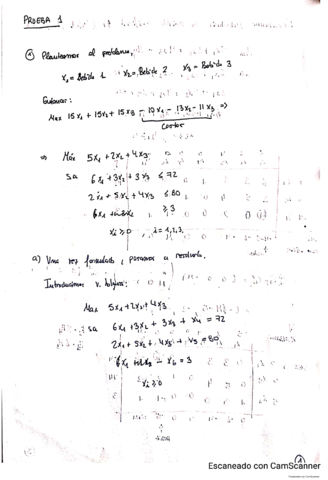 PRUEBA 1
① Planteamos el problema,
x₁ = Bebida 1 x₂ = Bebida 2 x₃ = Bebida 3
Max 15x₁ + 15x₂ + 15x₃ - 10x₁ - 13x₂ - 11x₃ ⇒
⇒ Máx 5x₁ + 2x₂ + 4x₃
sa 6x₁ + 3x₂ + 3x₃ ≤ 72
2x₁ + 5x₂ + 4x₃ ≤ 80
≥ 3
xᵢ ≥ 0 i = 1,2,3,
a) Una vez formulado, pasamos a resolverlo.
Introducimos v. holgura:
Max 5x₁ + 2x₂ + 4x₃
sa 6x₁ + 3x₂ + 3x₃ + x₄ = 72
2x₁ + 5x₂ + 4x₃ + x₅ = 80
- x₆ = 3
xᵢ ≥ 0
①
Escaneado con CamScanner